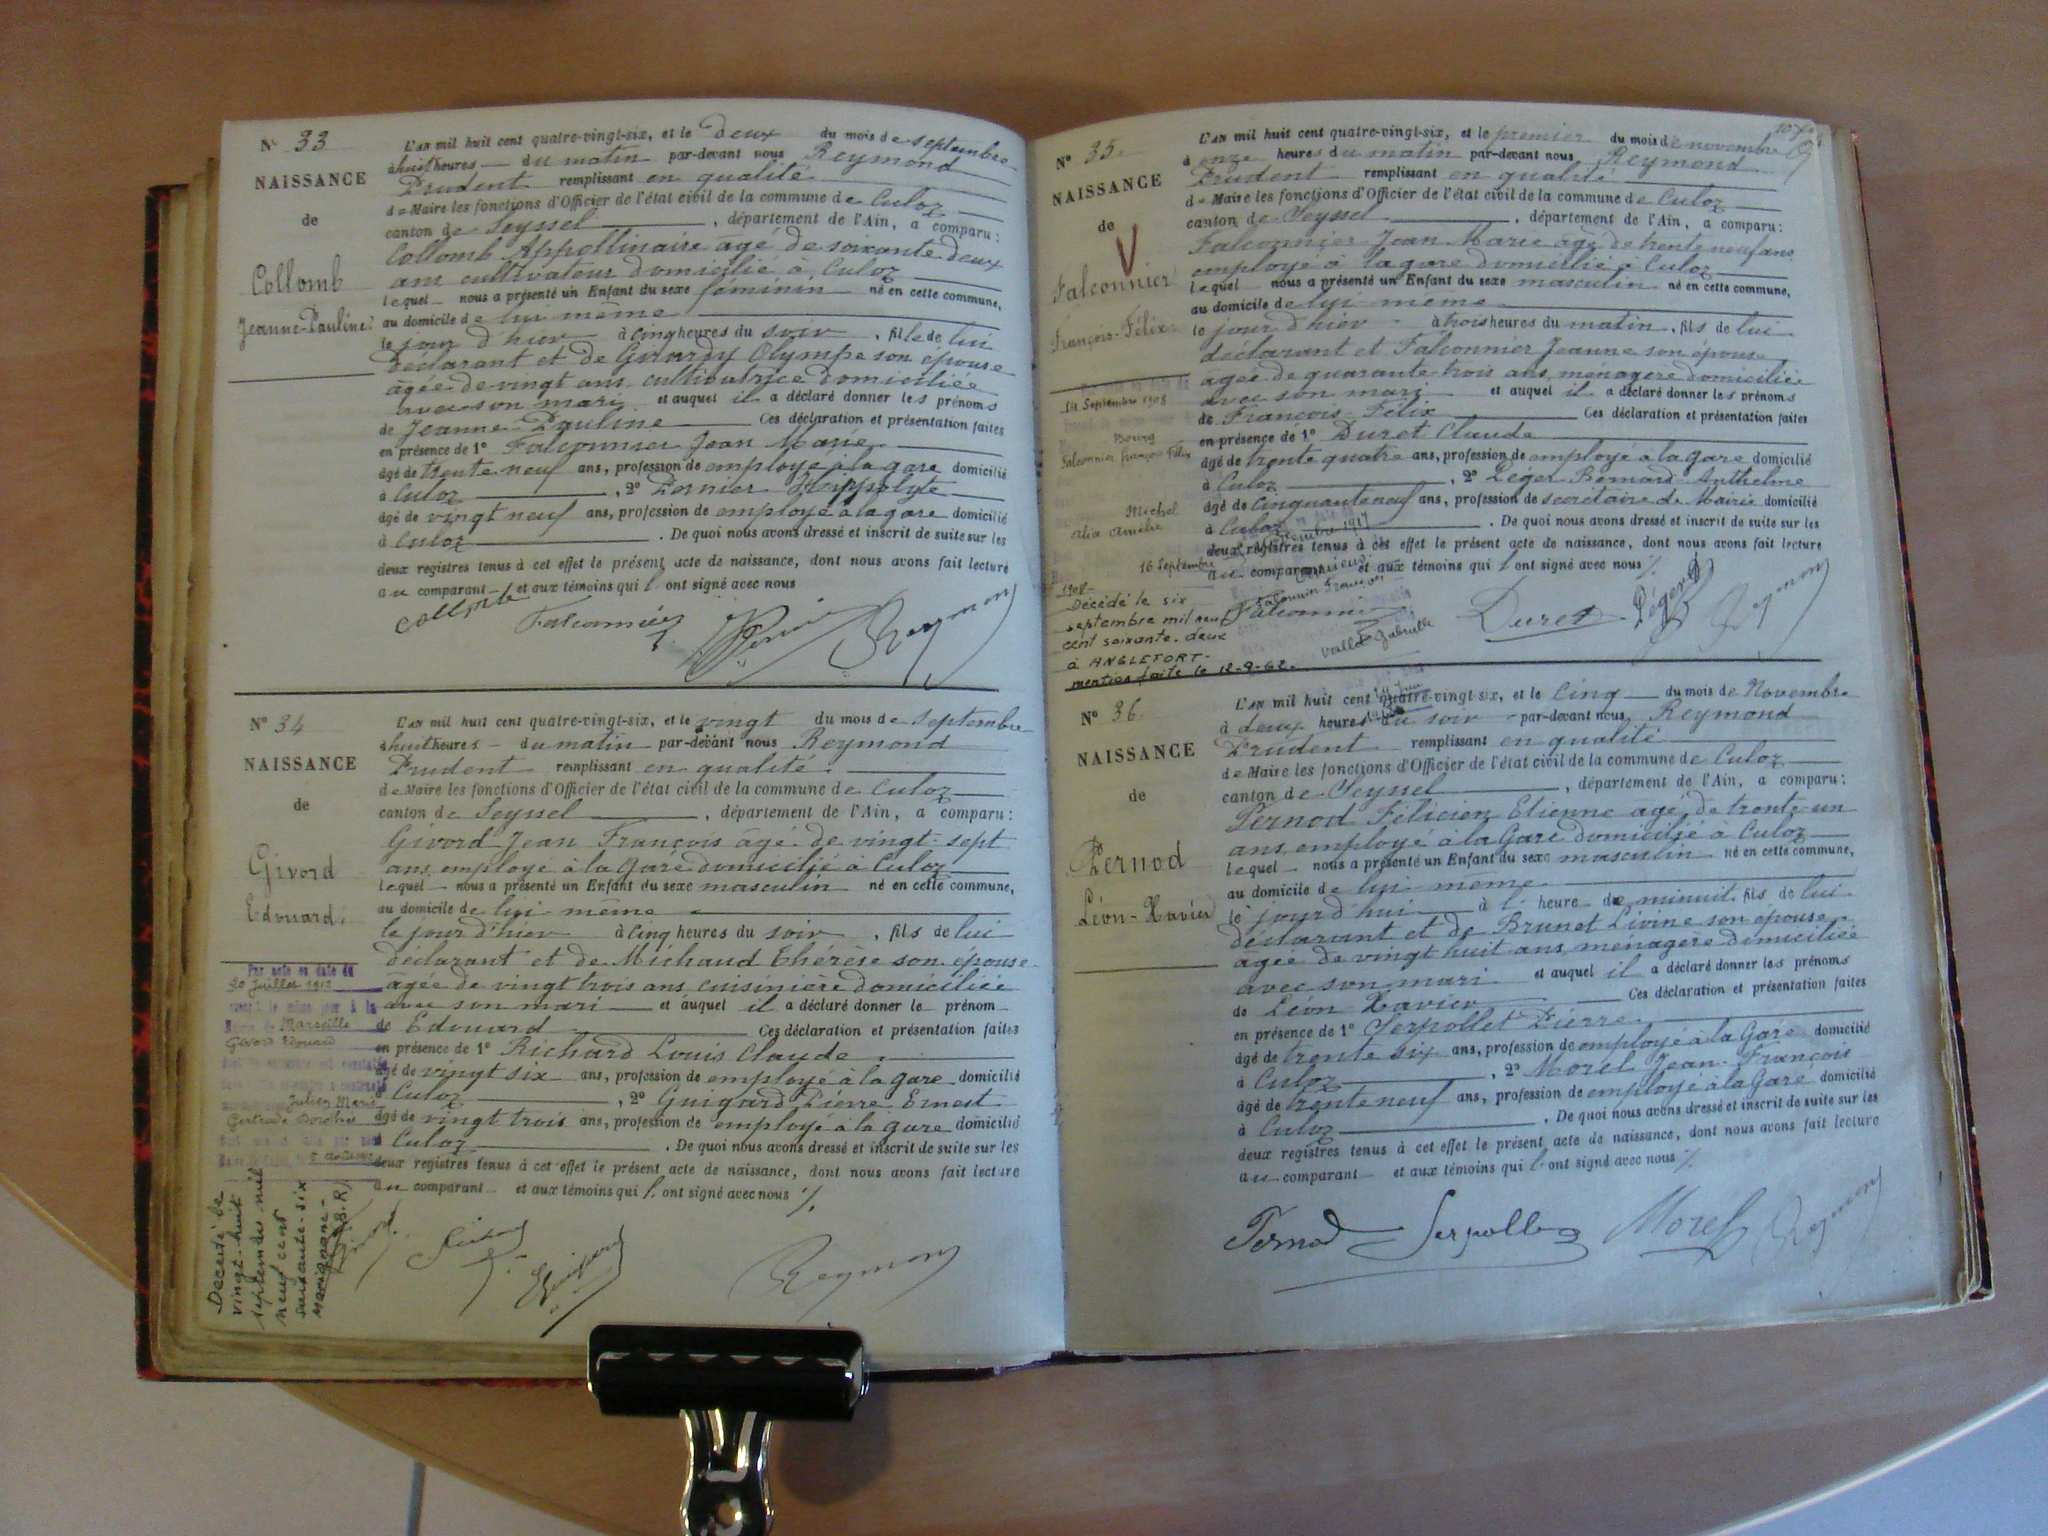 N° 33
NAISSANCE
de
Collomb
Jeanne-Pauline
L'AN mil huit cent quatre-vingt-six, et le deux du mois de septembre
à huit heures du matin par-devant nous Reymond
Prudent remplissant en qualité
de Maire les fonctions d'Officier de l'état civil de la commune de Culoz
canton de Seyssel, département de l'Ain, a comparu :
Collomb Appollinaire âgé de soixante deux
ans cultivateur domicilié à Culoz
lequel nous a présenté un Enfant du sexe féminin né en cette commune,
au domicile de lui même
le jour d'hier à cinq heures du soir, fille de lui
déclarant et de Girardy Olympe son épouse
âgée de vingt ans cultivatrice domiciliée
avec son mari et auquel il a déclaré donner les prénoms
de Jeanne-Pauline Ces déclaration et présentation faites
en présence de 1° Falconnier Jean Marie
âgé de trente neuf ans, profession de employé à la gare domicilié
à Culoz, 2° Pernier Hyppolyte
âgé de vingt neuf ans, profession de employé à la gare domicilié
à Culoz. De quoi nous avons dressé et inscrit de suite sur les
deux registres tenus à cet effet le présent acte de naissance, dont nous avons fait lecture
au comparant et aux témoins qui l'ont signé avec nous
Collomb Falconnier Reymond
N° 34
NAISSANCE
de
Givord
Edouard.
L'AN mil huit cent quatre-vingt-six, et le vingt du mois de septembre
à huit heures du matin par-devant nous Reymond
Prudent remplissant en qualité
de Maire les fonctions d'Officier de l'état civil de la commune de Culoz
canton de Seyssel, département de l'Ain, a comparu :
Givord Jean François âgé de vingt-sept
ans employé à la Gare domicilié à Culoz
lequel nous a présenté un Enfant du sexe masculin né en cette commune,
au domicile de lui-même
le jour d'hier à cinq heures du soir, fils de lui
déclarant et de Michaud Thérèse son épouse
âgée de vingt trois ans cuisinière domiciliée
avec son mari et auquel il a déclaré donner le prénom
de Edouard Ces déclaration et présentation faites
en présence de 1° Richard Louis Claude
âgé de vingt six ans, profession de employé à la gare domicilié
à Culoz, 2° Guigard Pierre Ernest
âgé de vingt trois ans, profession de employé à la gare domicilié
à Culoz. De quoi nous avons dressé et inscrit de suite sur les
deux registres tenus à cet effet le présent acte de naissance, dont nous avons fait lecture
au comparant et aux témoins qui l'ont signé avec nous
Par acte en date du
20 Juillet 1912
Marseille
Givord Edouard
Julien Marie
Gertrude
Décédé le
vingt-huit
septembre mil
neuf cent
soixante-six
Marignane
Reymond
N° 35
NAISSANCE
de
Falconnier
François-Félix
L'AN mil huit cent quatre-vingt-six, et le premier du mois de novembre
à onze heures du matin par-devant nous Reymond
Prudent remplissant en qualité
de Maire les fonctions d'Officier de l'état civil de la commune de Culoz
canton de Seyssel, département de l'Ain, a comparu :
Falconnier Jean Marie âgé de trente neuf ans
employé à la gare domicilié à Culoz
lequel nous a présenté un Enfant du sexe masculin né en cette commune,
au domicile de lui-même
le jour d'hier à trois heures du matin, fils de lui
déclarant et Falconnier Jeanne son épouse
âgée de quarante trois ans, ménagère domiciliée
avec son mari et auquel il a déclaré donner les prénoms
de François-Félix Ces déclaration et présentation faites
en présence de 1° Duret Claude
âgé de trente quatre ans, profession de employé à la gare domicilié
à Culoz, 2° Léger Bernard Anthelme
âgé de cinquante neuf ans, profession de secrétaire de Mairie domicilié
à Culoz. De quoi nous avons dressé et inscrit de suite sur les
deux registres tenus à cet effet le présent acte de naissance, dont nous avons fait lecture
au comparant et aux témoins qui l'ont signé avec nous
Septembre 1908
Bourg
Falconnier François Félix
Michel
Alix Amélie
16 Septembre
1908
Décédé le six
septembre mil neuf
cent soixante-deux
à ANGLEFORT
mention faite le 12-9-62
1917
Falconnier François
Vallet Gabrielle
Falconnier Duret Léger Reymond
N° 36
NAISSANCE
de
Pernod
Léon-Xavier
L'AN mil huit cent quatre-vingt-six, et le cinq du mois de Novembre
à deux heures du soir par-devant nous Reymond
Prudent remplissant en qualité
de Maire les fonctions d'Officier de l'état civil de la commune de Culoz
canton de Seyssel, département de l'Ain, a comparu :
Pernod Félicien Etienne âgé de trente un
ans, employé à la Gare domicilié à Culoz
lequel nous a présenté un Enfant du sexe masculin né en cette commune,
au domicile de lui-même
le jour d'hui à l' heure de minuit, fils de lui
déclarant et de Brunet Livine son épouse
âgée de vingt huit ans, ménagère domiciliée
avec son mari et auquel il a déclaré donner les prénoms
de Léon Xavier Ces déclaration et présentation faites
en présence de 1° Serpollet Pierre
âgé de trente six ans, profession de employé à la Gare domicilié
à Culoz, 2° Morel Jean-François
âgé de trente neuf ans, profession de employé à la Gare domicilié
à Culoz. De quoi nous avons dressé et inscrit de suite sur les
deux registres tenus à cet effet le présent acte de naissance, dont nous avons fait lecture
au comparant et aux témoins qui l'ont signé avec nous
Pernod Serpollet Morel Reymond